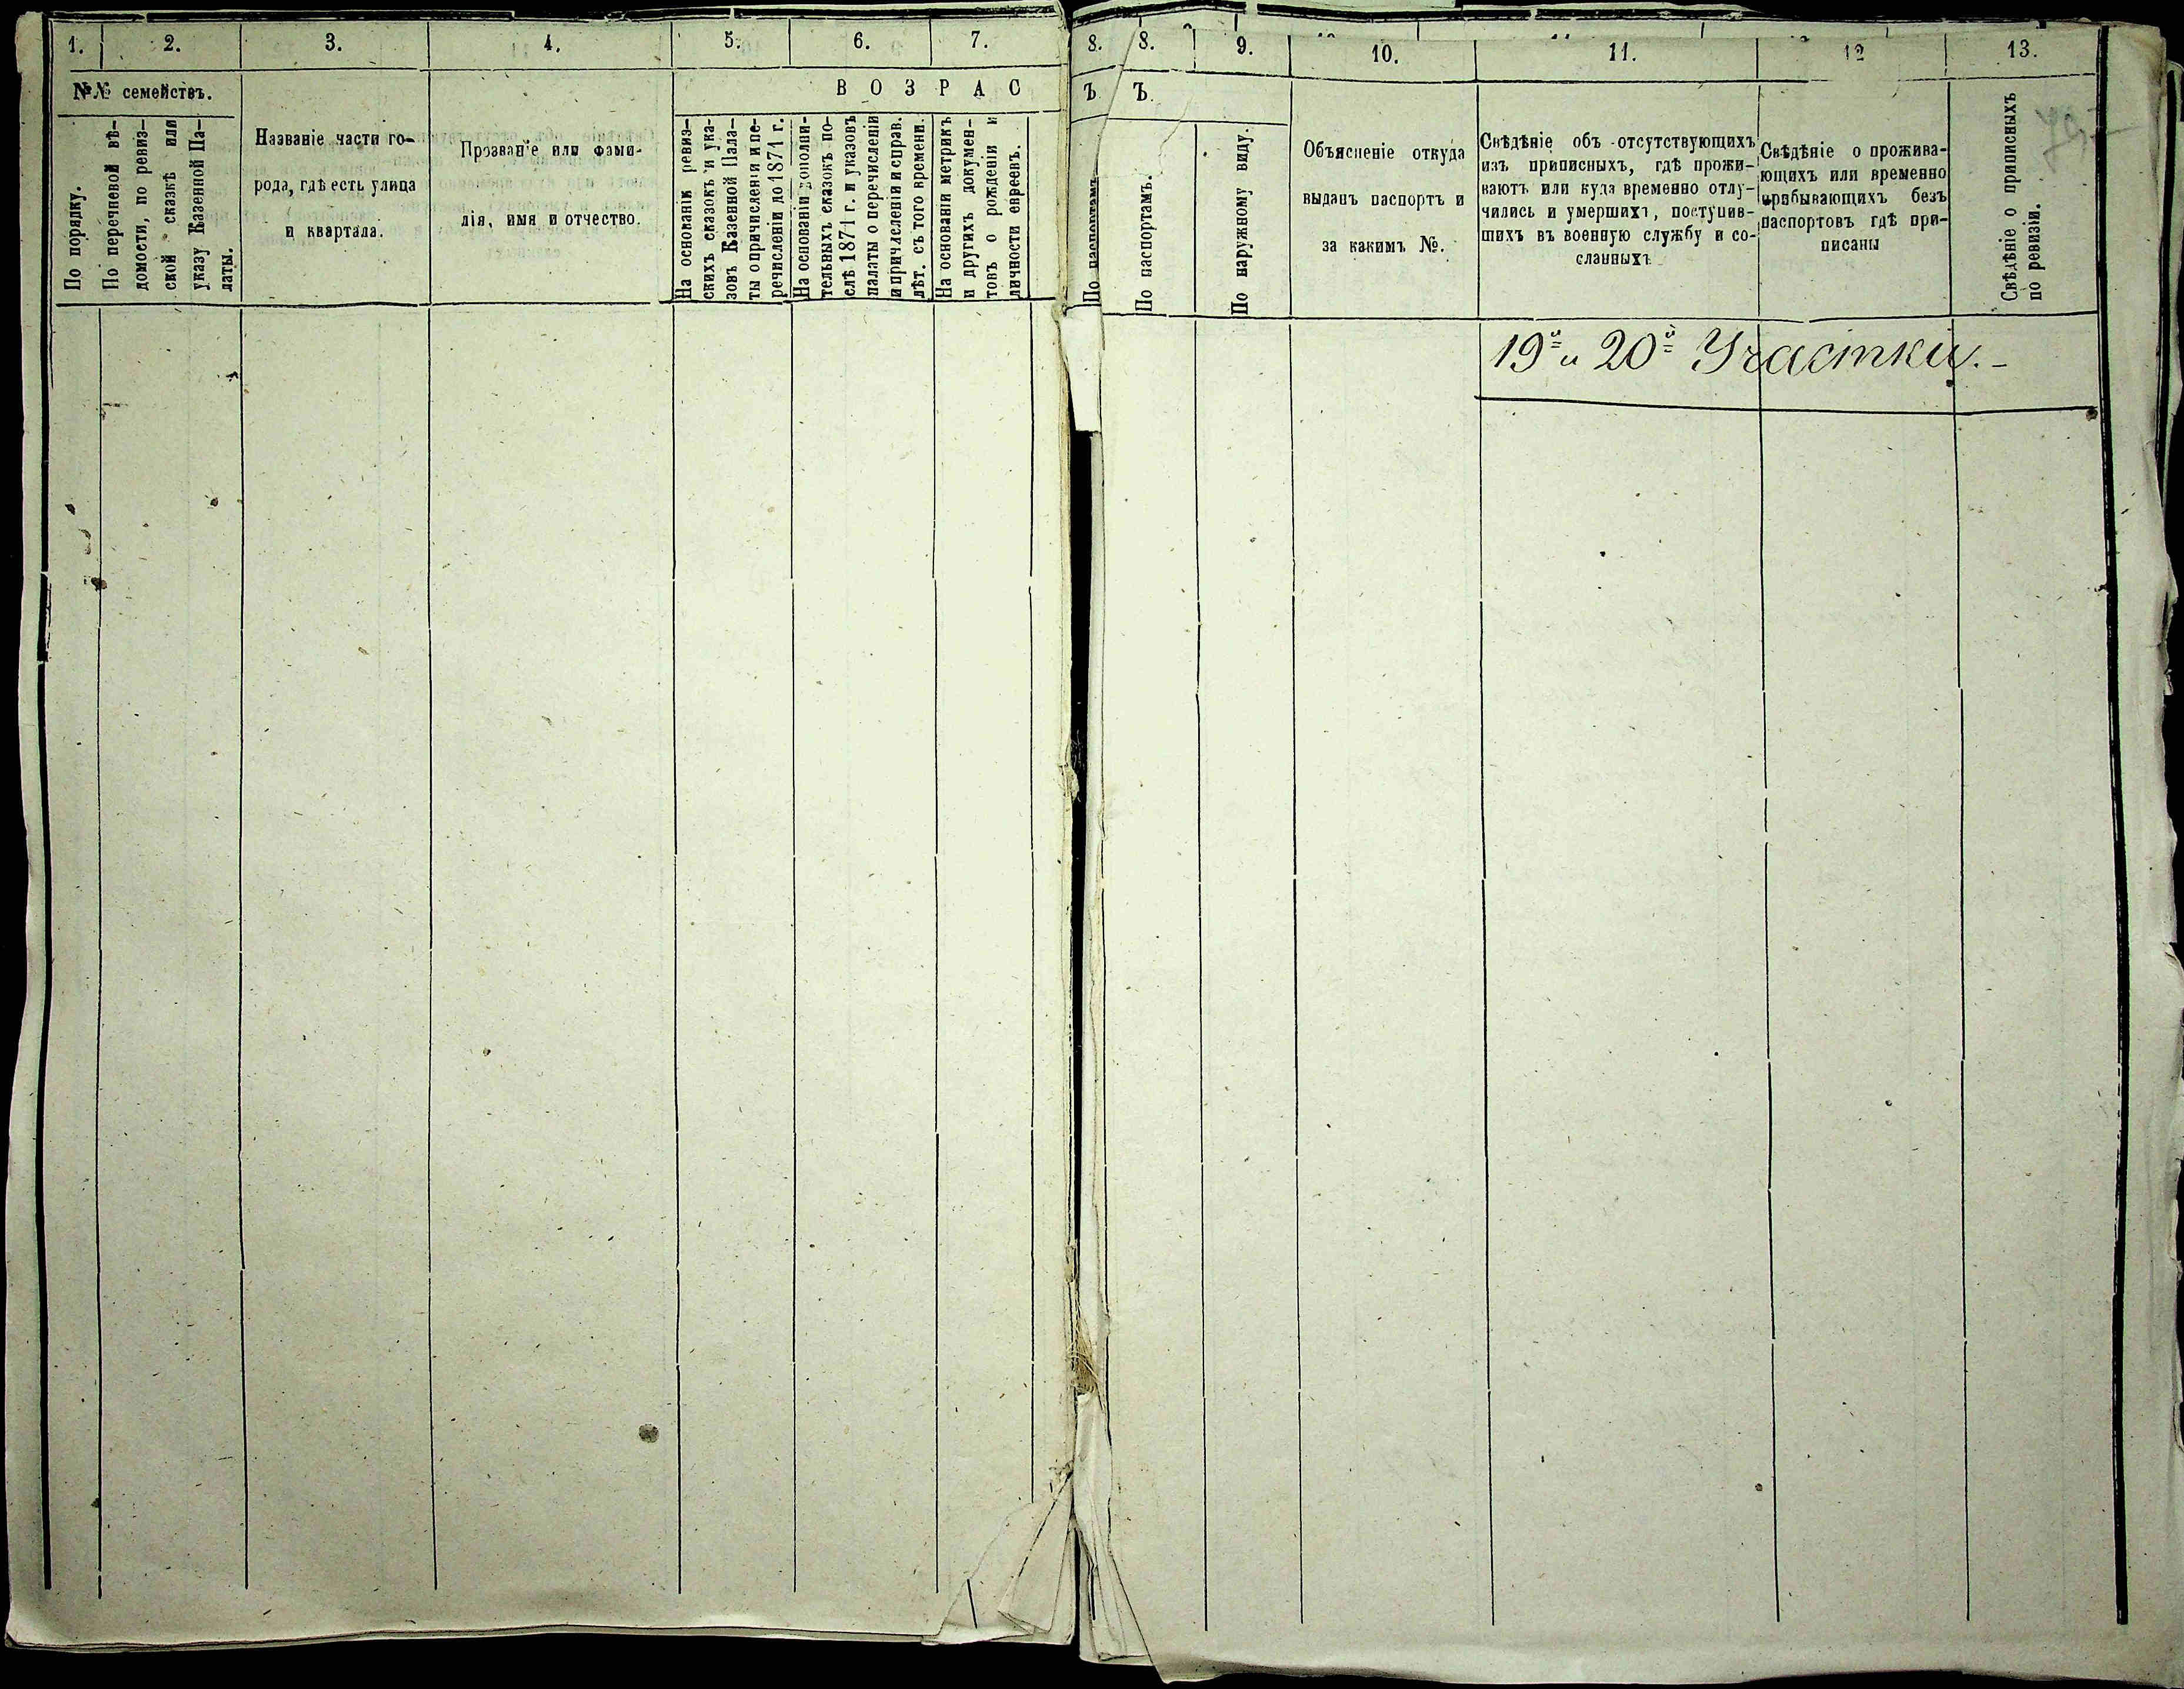 1.
2.
3.
4.
5.
6.
7.
№№ семействъ.
По порядку.
По перечневой вѣ-
домости, по ревиз-
ской сказкѣ или
указу Казенной Па-
латы.
Названіе части го-
рода, гдѣ есть улица
и квартала.
Прозваніе или фами-
лія, имя и отчество.
ВОЗРАС
На основаніи ревиз-
скихъ сказокъ и ука-
зовъ Казенной Пала-
ты о причисленіи и пе-
речисленіи до 1871 г.
На основаніи дополни-
тельныхъ сказокъ по-
слѣ 1871 г. и указовъ
палаты о перечисленіи
и причисленіи и справ.
лѣт. съ того времени.
На основаніи метрикъ
и другихъ докумен-
товъ о рожденіи и
личности евреевъ.
8.
Ъ
По паспортамъ
8.
9.
10.
11.
12
13.
Ъ.
По паспортамъ.
По наружному виду.
Объясненіе откуда
выданъ паспортъ и
за какимъ №.
Свѣдѣніе объ отсутствующихъ
изъ приписныхъ, гдѣ прожи-
ваютъ или куда временно отлу-
чились и умершихъ, поступив-
шихъ въ военную службу и со-
сланныхъ
Свѣдѣніе о прожива-
ющихъ или временно
прибывающихъ безъ
паспортовъ гдѣ при-
писаны
Свѣдѣніе о приписныхъ
по ревизіи.
19й и 20й Участки.-